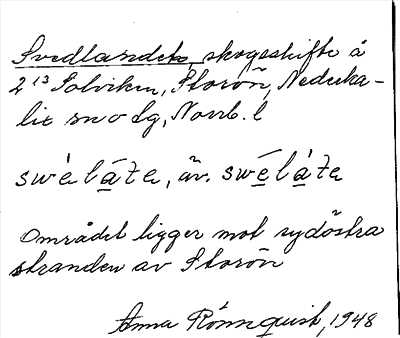 Svedlandet, skogsskifte å
2¹³ Solviken, Storön, Nederka-
lix sn o lg, Norrb. l
swèlāta, äv. swēlàta
Området ligger mot sydöstra
stranden av Storön
Anna Rönnquist, 1948